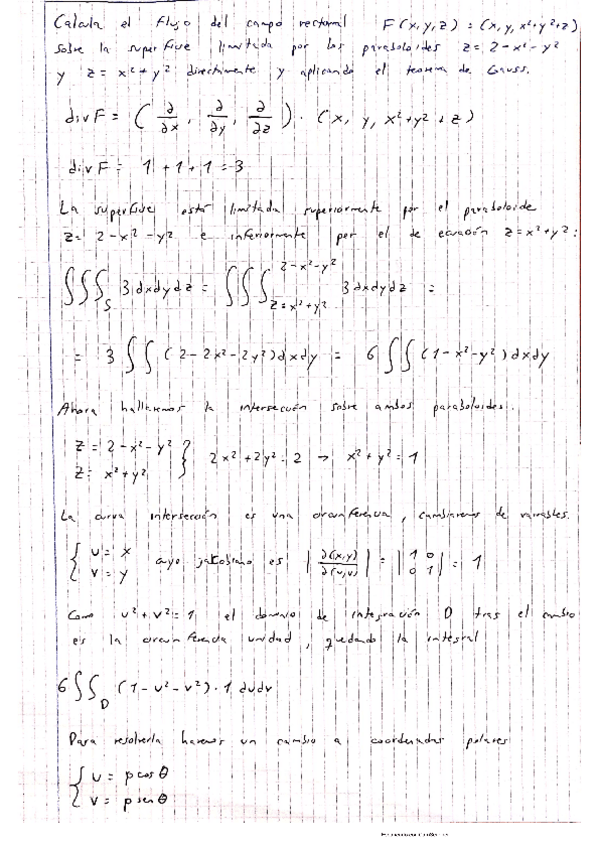 Calcula el flujo del campo vectorial F(x,y,z) = (x, y, x²+y²+z)
sobre la superficie limitada por los paraboloides z = 2-x²-y²
y z = x²+y² directamente y aplicando el teorema de Gauss.
div F = (∂/∂x, ∂/∂y, ∂/∂z) · (x, y, x²+y²+z)
div F = 1+1+1 = 3
La superficie está limitada superiormente por el paraboloide
z = 2-x²-y² e inferiormente por el de ecuación z = x²+y²:
∭_S 3dxdydz = ∭_{z=x²+y²}^{2-x²-y²} 3dxdydz =
= 3∬(2-2x²-2y²)dxdy = 6∬(1-x²-y²)dxdy
Ahora hallaremos la intersección sobre ambos paraboloides.
z = 2-x²-y²
z = x²+y² } 2x²+2y² = 2 → x²+y² = 1
La curva intersección es una circunferencia, cambiaremos de variables.
{ u = x
v = y cuyo jacobiano es |∂(x,y)/∂(u,v)| = |1 0 0 1| = 1
Como u²+v²=1, el dominio de integración D tras el cambio
es la circunferencia unidad, quedando la integral
6∬_D (1-u²-v²)·1 dudv
Para resolverla haremos un cambio a coordenadas polares
{ u = ρ cos θ
v = ρ sen θ